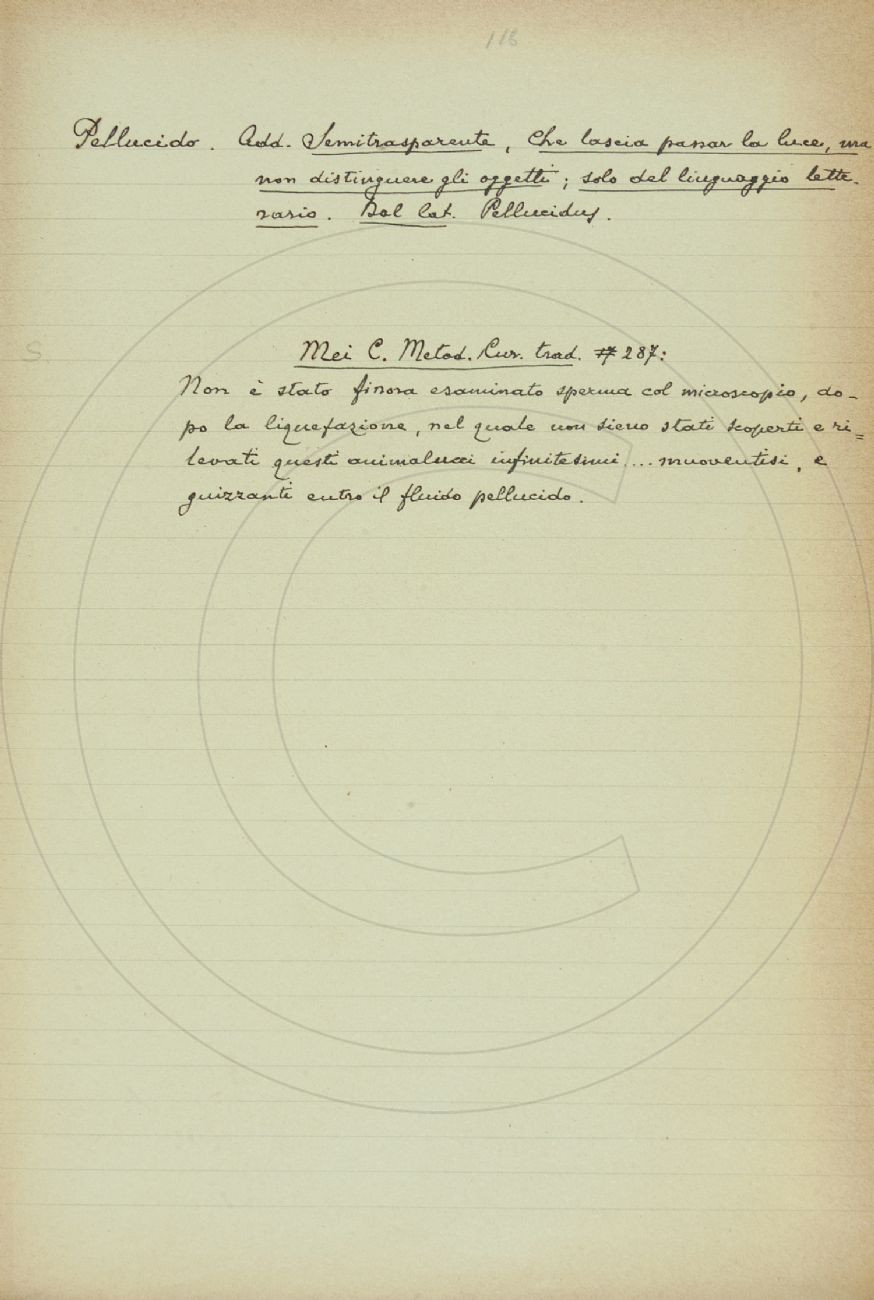 118
Pellucido. Add. Semitrasparente, Che lascia passar la luce, ma
non distinguere gli oggetti; solo del linguaggio lette-
rario. Dal lat. Pellucidus.
S
Mei C. Metod. Cur. trad. 7 287:
Non è stato finora esaminato sperma col microscopio, do-
po la liquefazione, nel quale non sieno stati scoperti e ri=
levati questi animalucci infinitesimi.... muoventisi, e
guizzanti entro il fluido pellucido.